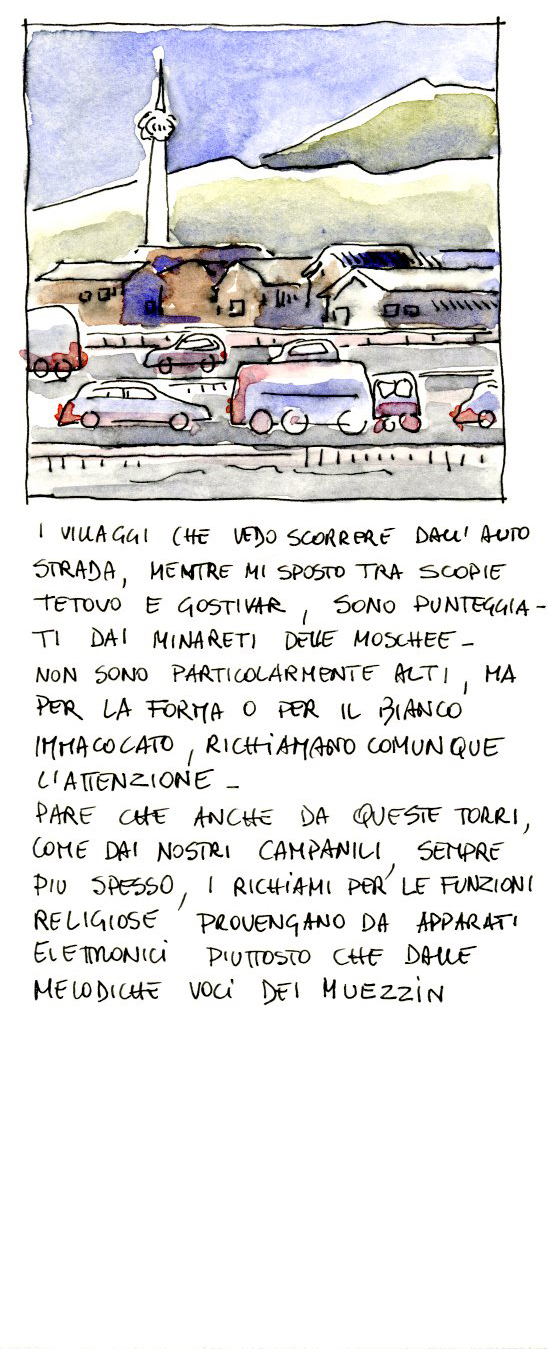 I VILLAGGI CHE VEDO SCORRERE DALL'AUTO
STRADA, MENTRE MI SPOSTO TRA SCOPIE
TETOVO E GOSTIVAR, SONO PUNTEGGIA-
TI DAI MINARETI DELLE MOSCHEE-
NON SONO PARTICOLARMENTE ALTI, MA
PER LA FORMA O PER IL BIANCO
IMMACOLATO, RICHIAMANO COMUNQUE
L'ATTENZIONE-
PARE CHE ANCHE DA QUESTE TORRI,
COME DAI NOSTRI CAMPANILI, SEMPRE
PIU SPESSO, I RICHIAMI PER LE FUNZIONI
RELIGIOSE PROVENGANO DA APPARATI
ELETTRONICI PIUTTOSTO CHE DALLE
MELODICHE VOCI DEI MUEZZIN